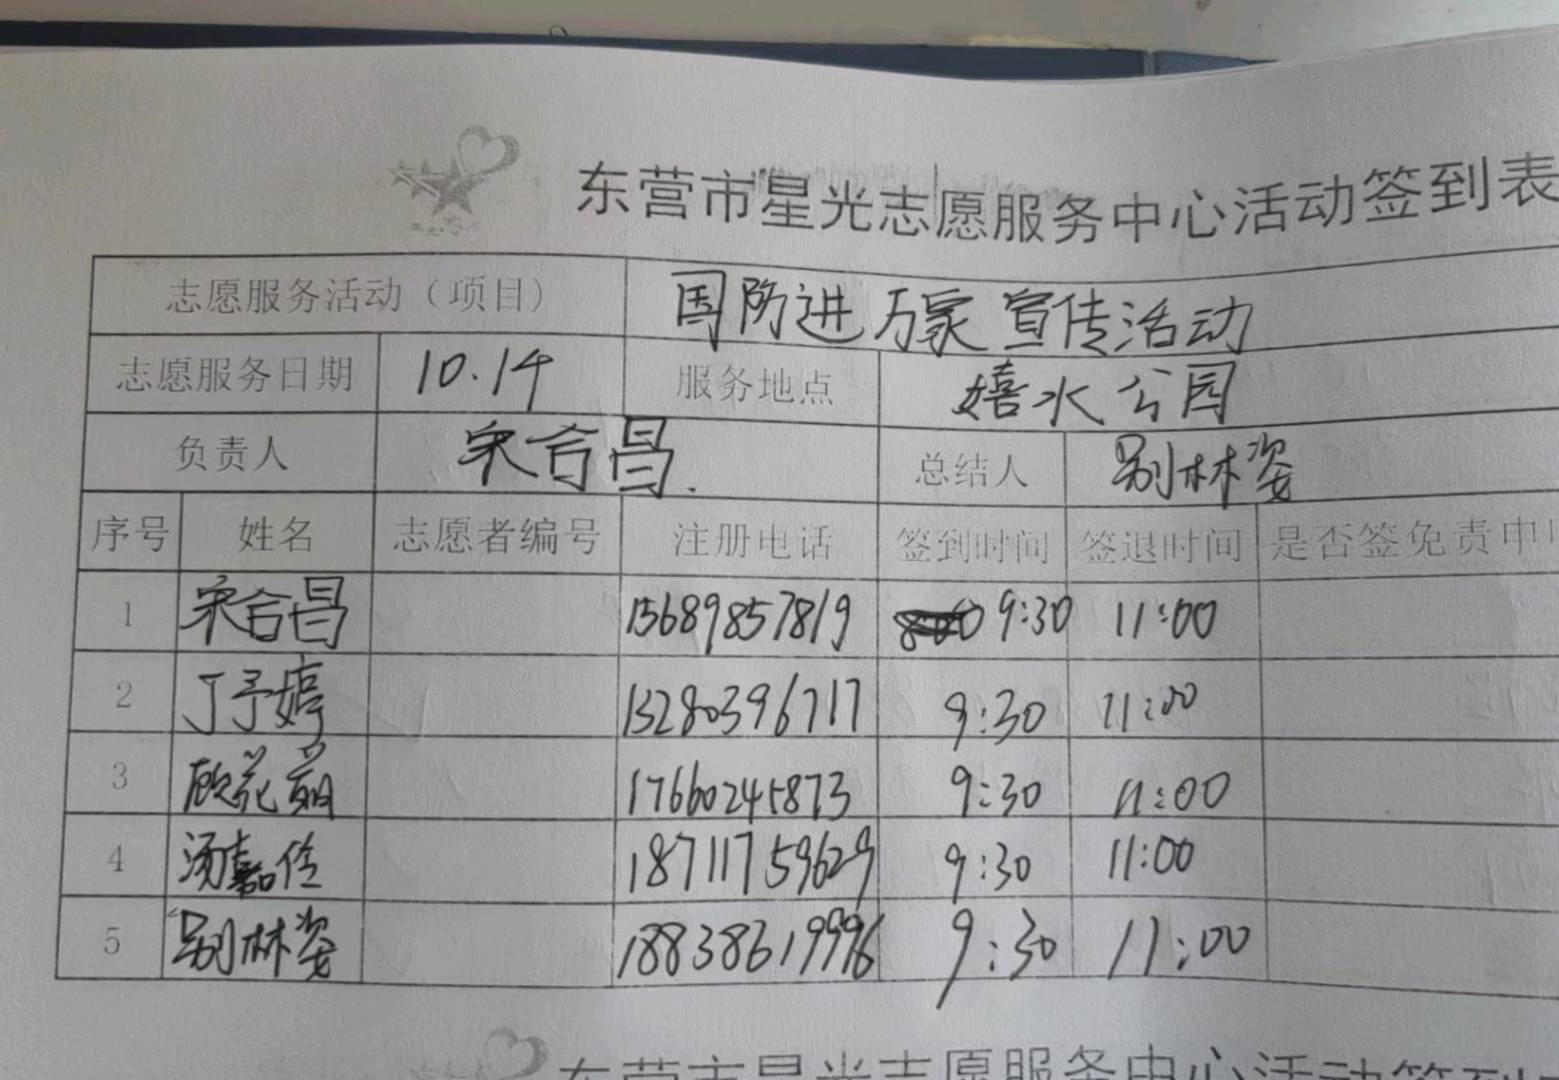 东营市星光志愿服务中心活动签到表
志愿服务活动（项目） 国防进万家宣传活动
志愿服务日期 10.14 服务地点 嬉水公园
负责人 宋合昌. 总结人 别林姿
序号 姓名 志愿者编号 注册电话 签到时间 签退时间 是否签免责申
1 宋合昌 15689857819 9:30 11:00
2 丁予婷 13280396717 9:30 11:00
3 顾苑茹 17660245873 9:30 11:00
4 汤嘉伶 18711759629 9:30 11:00
5 别林姿 18838619996 9:30 11:00
东营市星光志愿服务中心活动签到